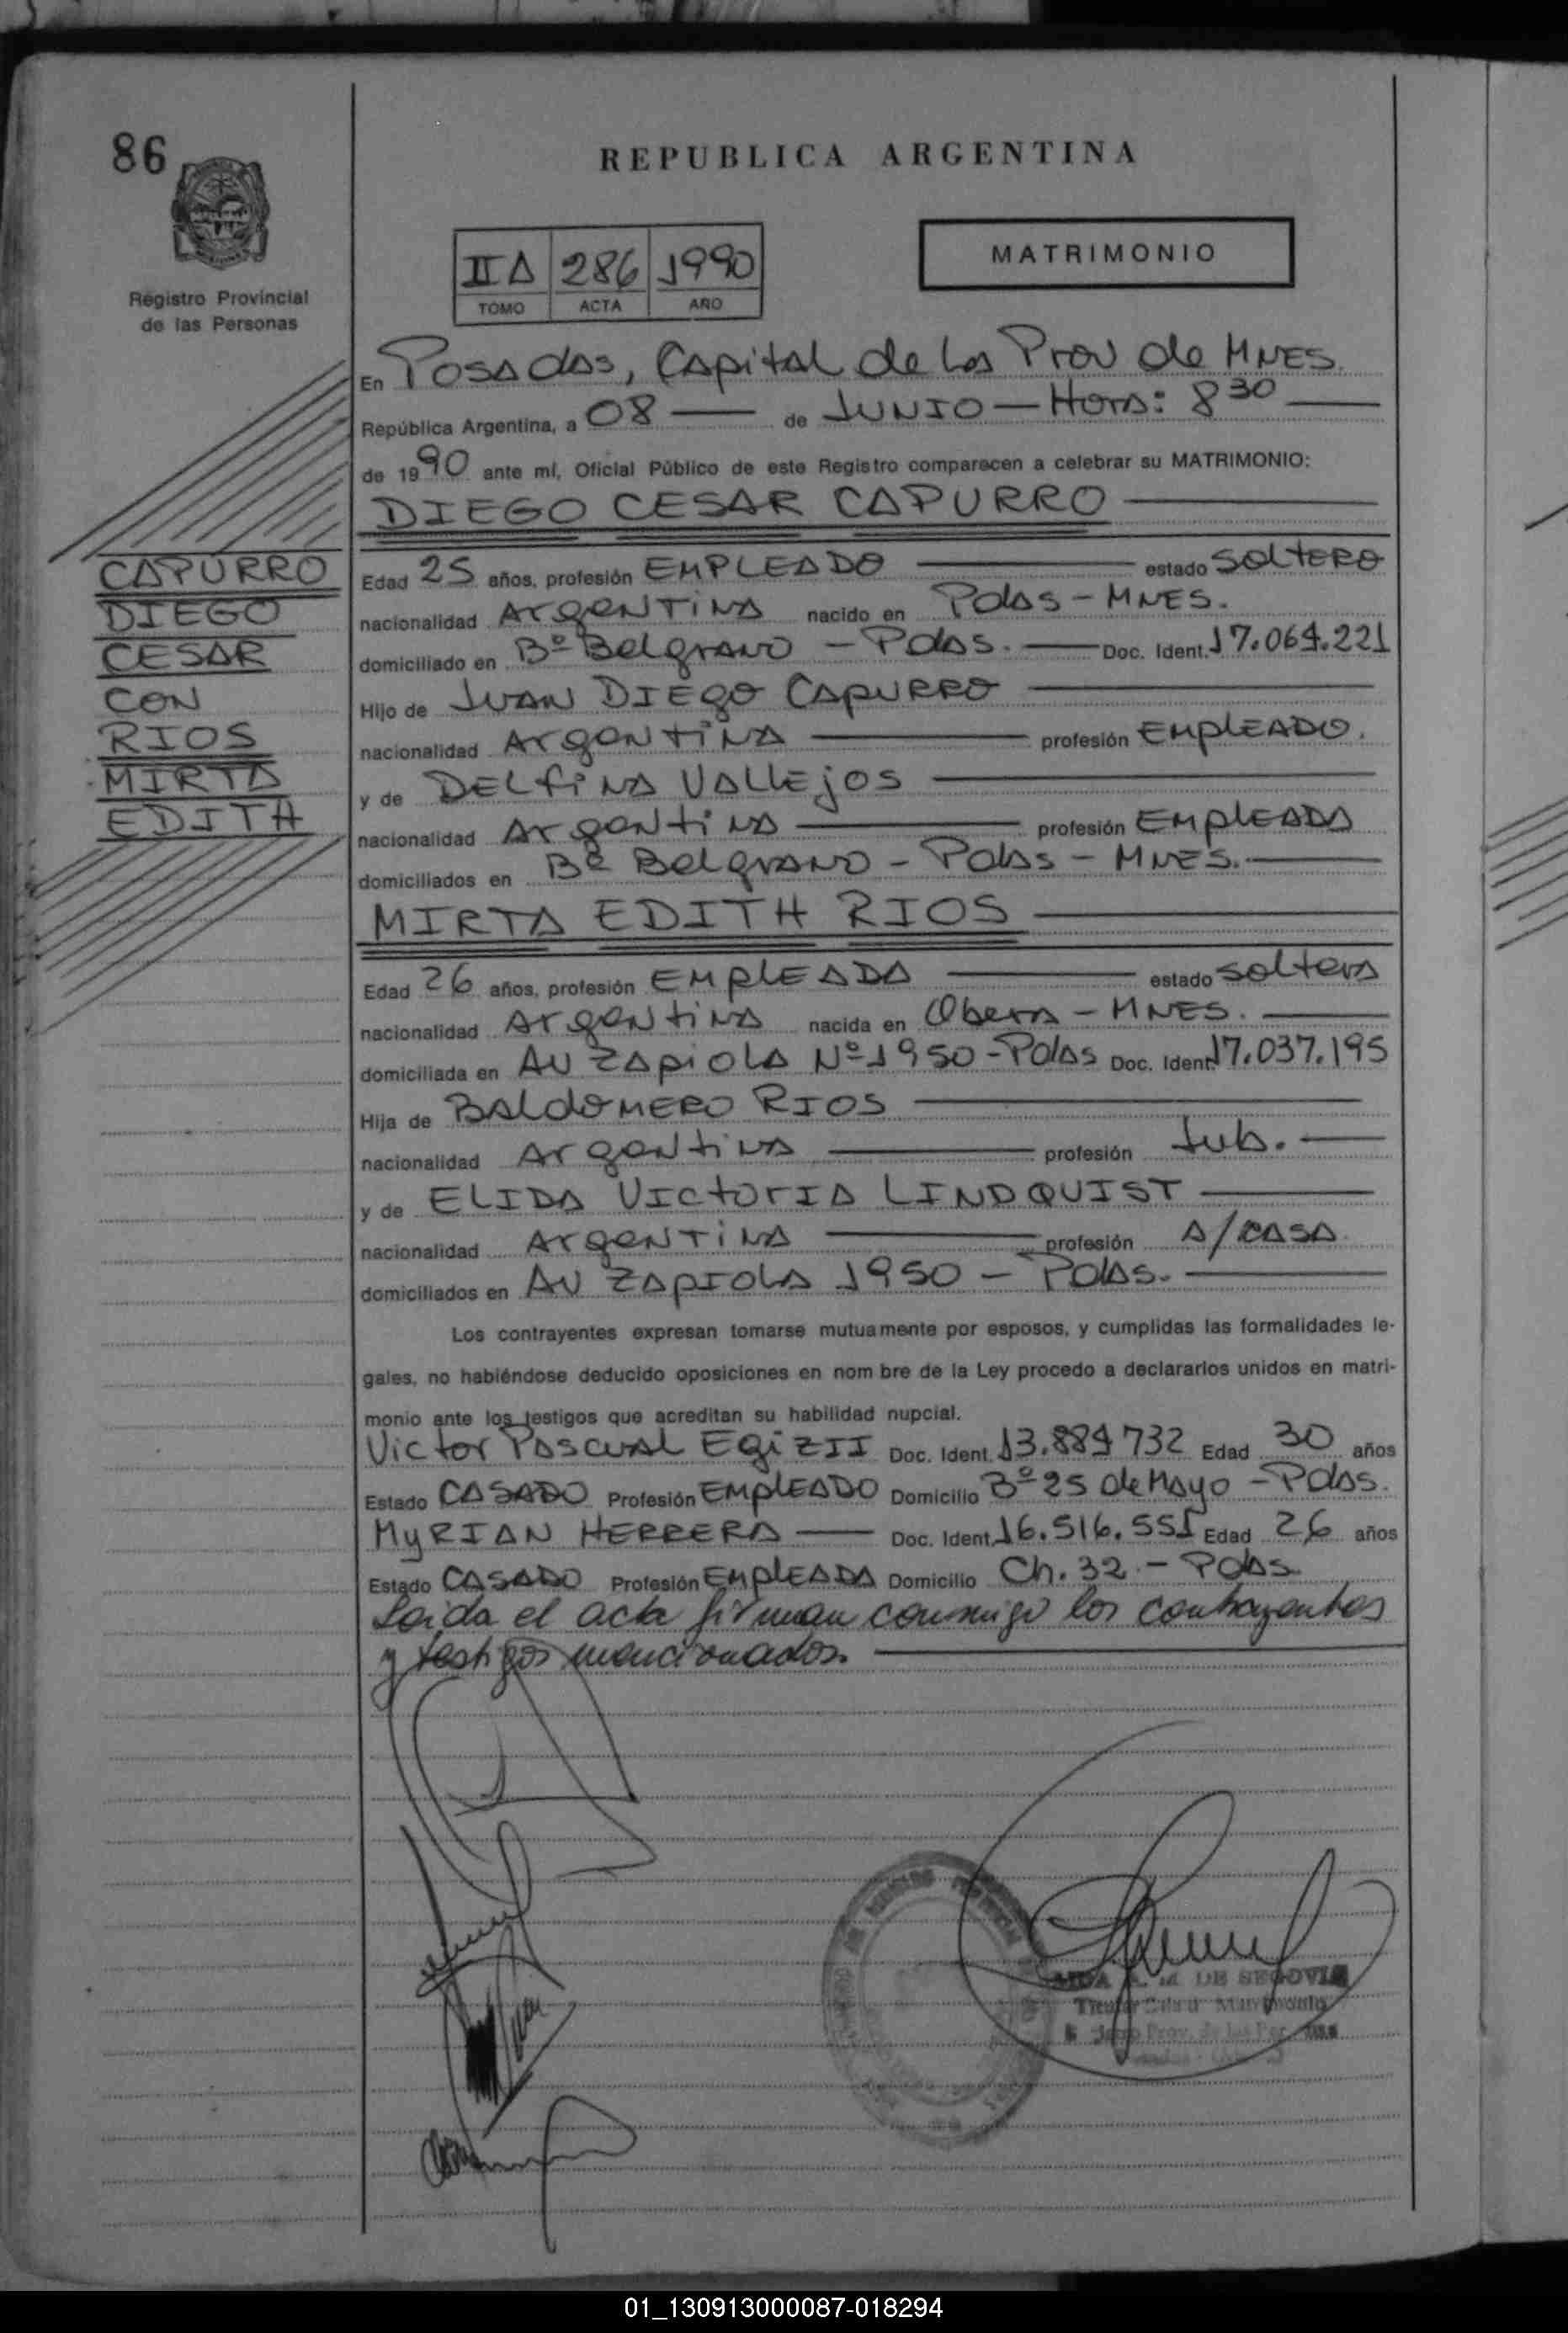 86
REPUBLICA ARGENTINA
Registro Provincial
de las Personas
IIA 286 1990
TOMO ACTA AÑO
MATRIMONIO
En Posadas, Capital de la Prov de MNES.
República Argentina, a 08 — de JUNIO — Hora: 8 30 —
de 1990 ante mí, Oficial Público de este Registro comparecen a celebrar su MATRIMONIO:
DIEGO CESAR CAPURRO
CAPURRO
DIEGO
CESAR
CON
RIOS
MIRTA
EDITH
Edad 25 años, profesión EMPLEADO — estado SOLTERO
nacionalidad ARGENTINA nacido en Pdas - MNES.
domiciliado en Bº Belgrano - Pdas. — Doc. Ident. 17.064.221
Hijo de JUAN DIEGO CAPURRO
nacionalidad Argentina — profesión EMPLEADO.
y de DELFINA VALLEJOS
nacionalidad Argentina — profesión EMPLEADA
domiciliados en Bº Belgrano - Pdas - MNES. —
MIRTA EDITH RIOS
Edad 26 años, profesión EMPLEADA — estado soltera
nacionalidad Argentina nacida en Obera - MNES. —
domiciliada en AV ZAPIOLA Nº 1950 - Pdas Doc. Ident. 17.037.195
Hija de BALDOMERO RIOS
nacionalidad Argentina — profesión Jub. —
y de ELIDA VICTORIA LINDQUIST —
nacionalidad Argentina — profesión A/CASA
domiciliados en AV ZAPIOLA 1950 - Pdas. —
Los contrayentes expresan tomarse mutuamente por esposos, y cumplidas las formalidades le-
gales, no habiéndose deducido oposiciones en nom bre de la Ley procedo a declararlos unidos en matri-
monio ante los testigos que acreditan su habilidad nupcial.
Victor Pascual EGIZII Doc. Ident. 13.884732 Edad 30 años
Estado CASADO Profesión EMPLEADO Domicilio Bº 25 de Mayo - Pdas.
MYRIAN HERRERA — Doc. Ident. 16.516.551 Edad 26 años
Estado CASADO Profesión EMPLEADA Domicilio Ch. 32 - Pdas
Leida el acta firman conmigo los contrayentes
y testigos mencionados. —
A. M. DE SEGOVIA
01_130913000087-018294